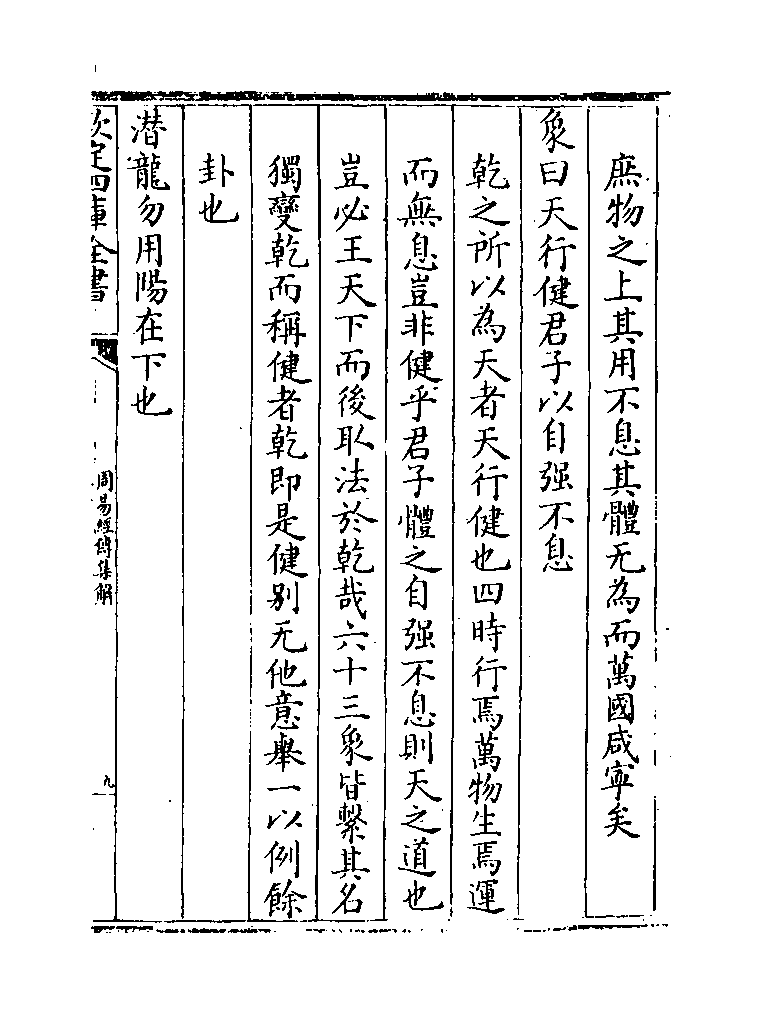 庶物之上其用不息其體无為而萬國咸寧矣
象曰天行健君子以自强不息
乾之所以為天者天行健也四時行焉萬物生焉運
而無息豈非健乎君子體之自强不息則天之道也
豈必王天下而後取法於乾哉六十三象皆繫其名
獨變乾而稱健者乾即是健别无他意舉一以例餘
卦也
潜龍勿用陽在下也
欽定四庫全書
周易經傳集解
九